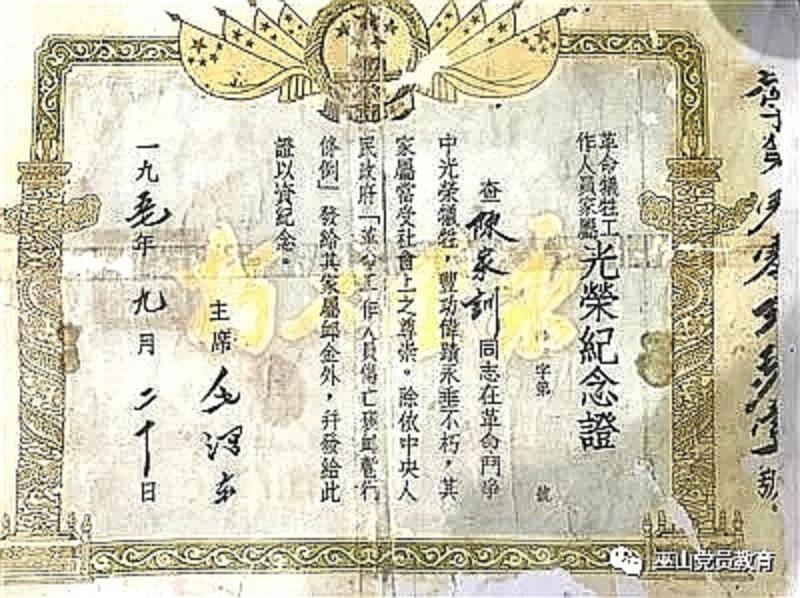 革命犧牲工
作人員家屬
光榮紀念證
字第 號
查陳家訓同志在革命鬥爭
中光榮犧牲，豐功偉蹟永垂不朽，其
家屬當受社會上之尊崇。除依中央人
民政府「革命工作人員傷亡褒卹暫行
條例」發給其家屬卹金外，并發給此
證以資紀念。
主席 毛澤东
一九 年九月二十日
巫山党员教育